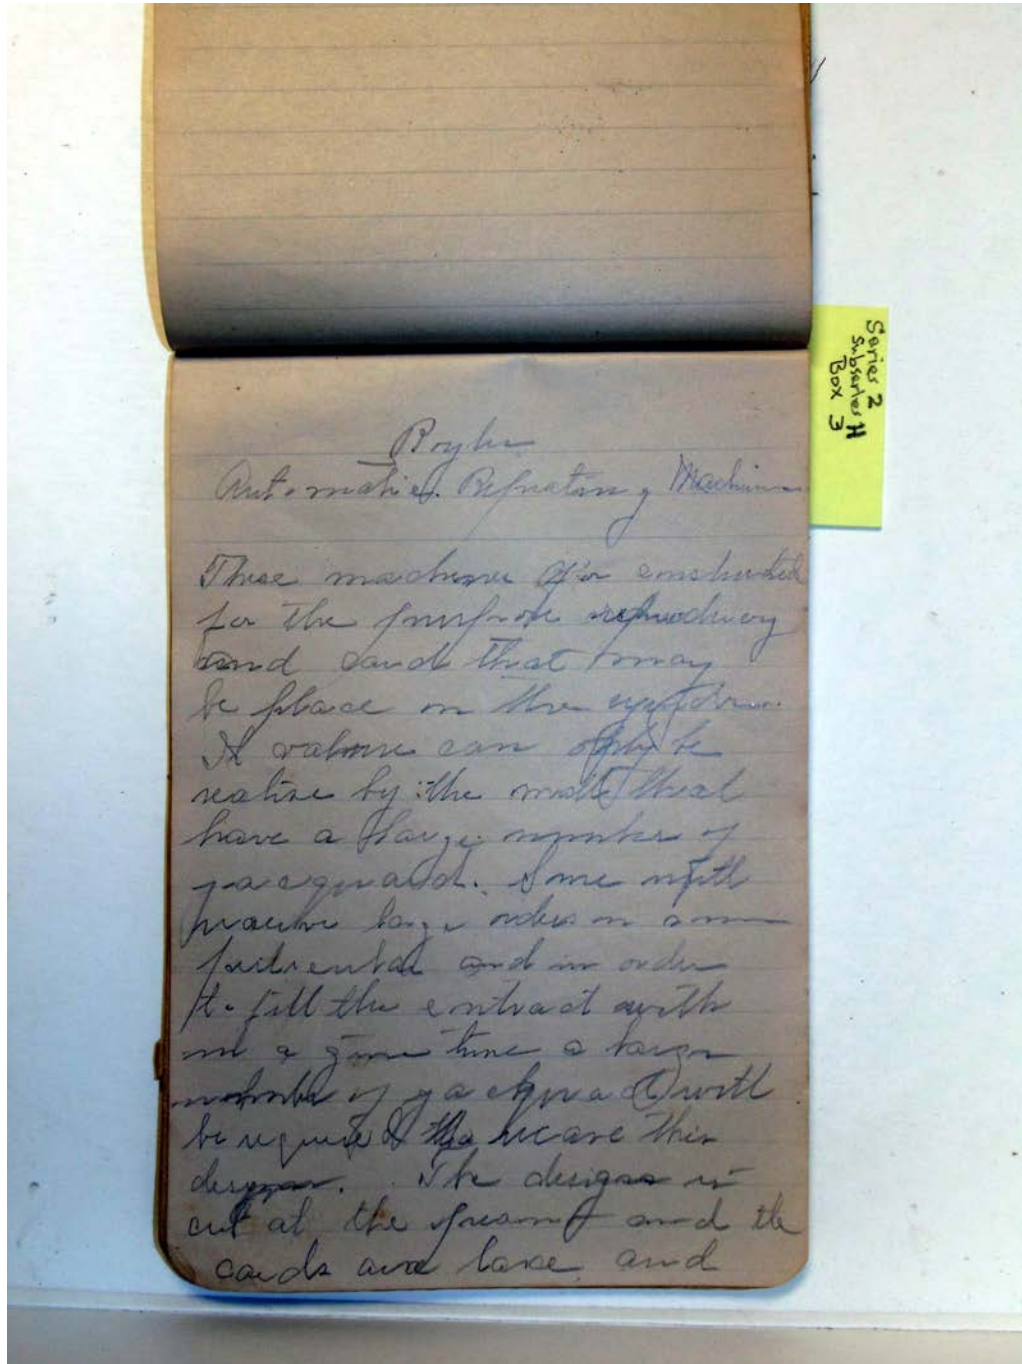 Royle
Automatic Repeating Machine
These machine are constructed
for the purpose reproducing
and card that may
be place on the
It value can only be
realise by the mills that
have a large number of
jacquard. Some mill
receive large orders on some
and in order
to fill the contract with
in a given time a large
number of jacquard will
be required to weave this
design. The designs is
cut at the piano and the
cards are lace and
Series 2
Subseries H
Box 3